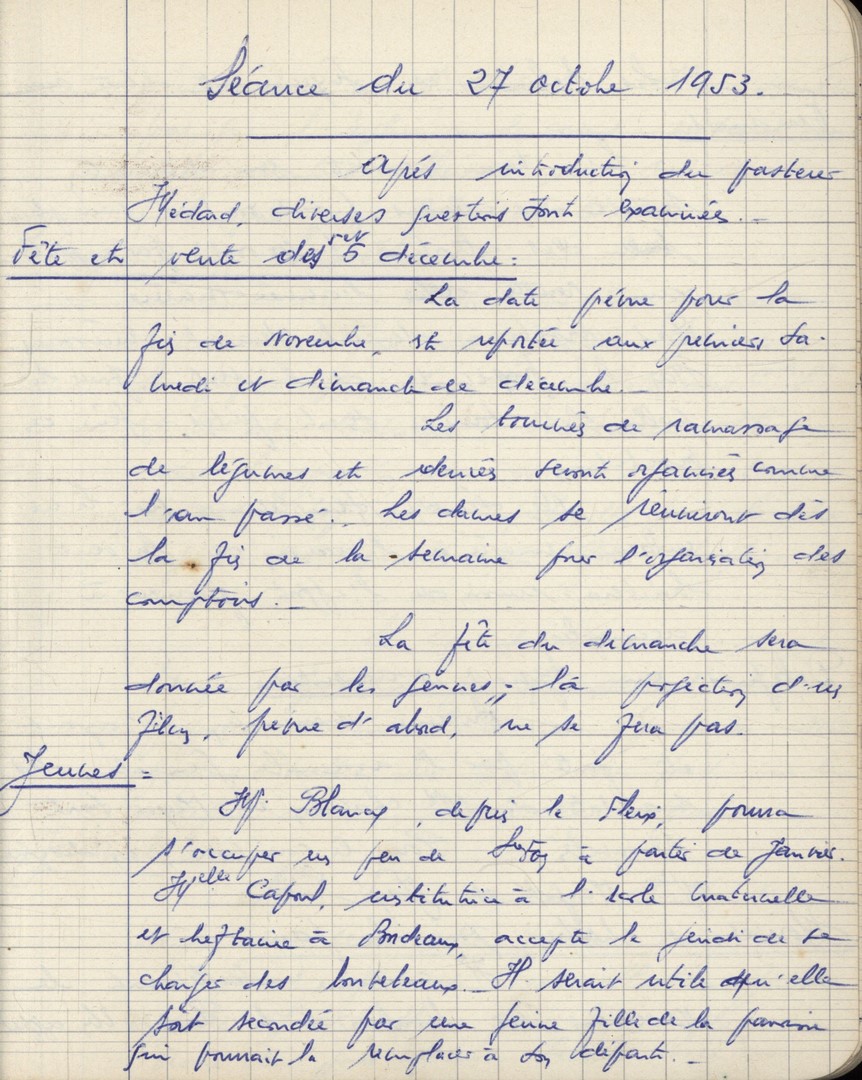 Séance du 27 octobre 1953.
Après introduction du pasteur
Médard, diverses questions sont examinées._
Fête et vente des 5 et 6 décembre :
La date prévue pour la
fin de Novembre, est reportée aux premiers sa-
medi et dimanche de décembre._
Les tournées de ramassage
de légumes et denrées seront organisées comme
l'an passé. Les dames se réuniront dès
la fin de la semaine pour l'organisation des
comptoirs._
La fête du dimanche sera
donnée par les jeunes ; la projection d'un
film, prévue d'abord, ne se fera pas.
Jeunes =
Mr. Blanc, depuis le Fleix, pourra
s'occuper un peu de Ste Foy à partir de Janvier.
Melle Capoul, institutrice à l'école maternelle
et cheftaine à Bordeaux, accepte le jeudi de se
charger des louveteaux._ Il serait utile qu'elle
soit secondée par une jeune fille de la paroisse
qui pourrait la remplacer à son départ._